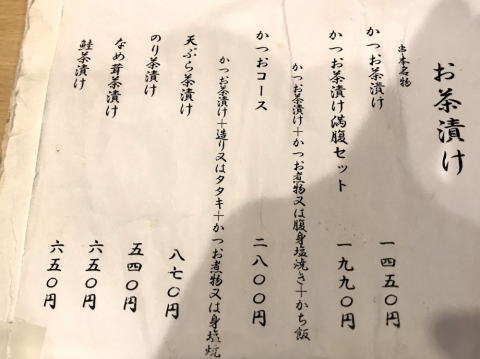 お茶漬け
串本名物
かつお茶漬け 一四五〇円
かつお茶漬け満腹セット 一九九〇円
かつお茶漬け＋かつお煮物又は腹身塩焼き＋かち飯
かつおコース 二八〇〇円
かつお茶漬け＋造り又はタタキ＋かつお煮物又は身塩焼
天ぷら茶漬け 八七〇円
のり茶漬け 五四〇円
なめ茸茶漬け 六五〇円
鮭茶漬け 六五〇円